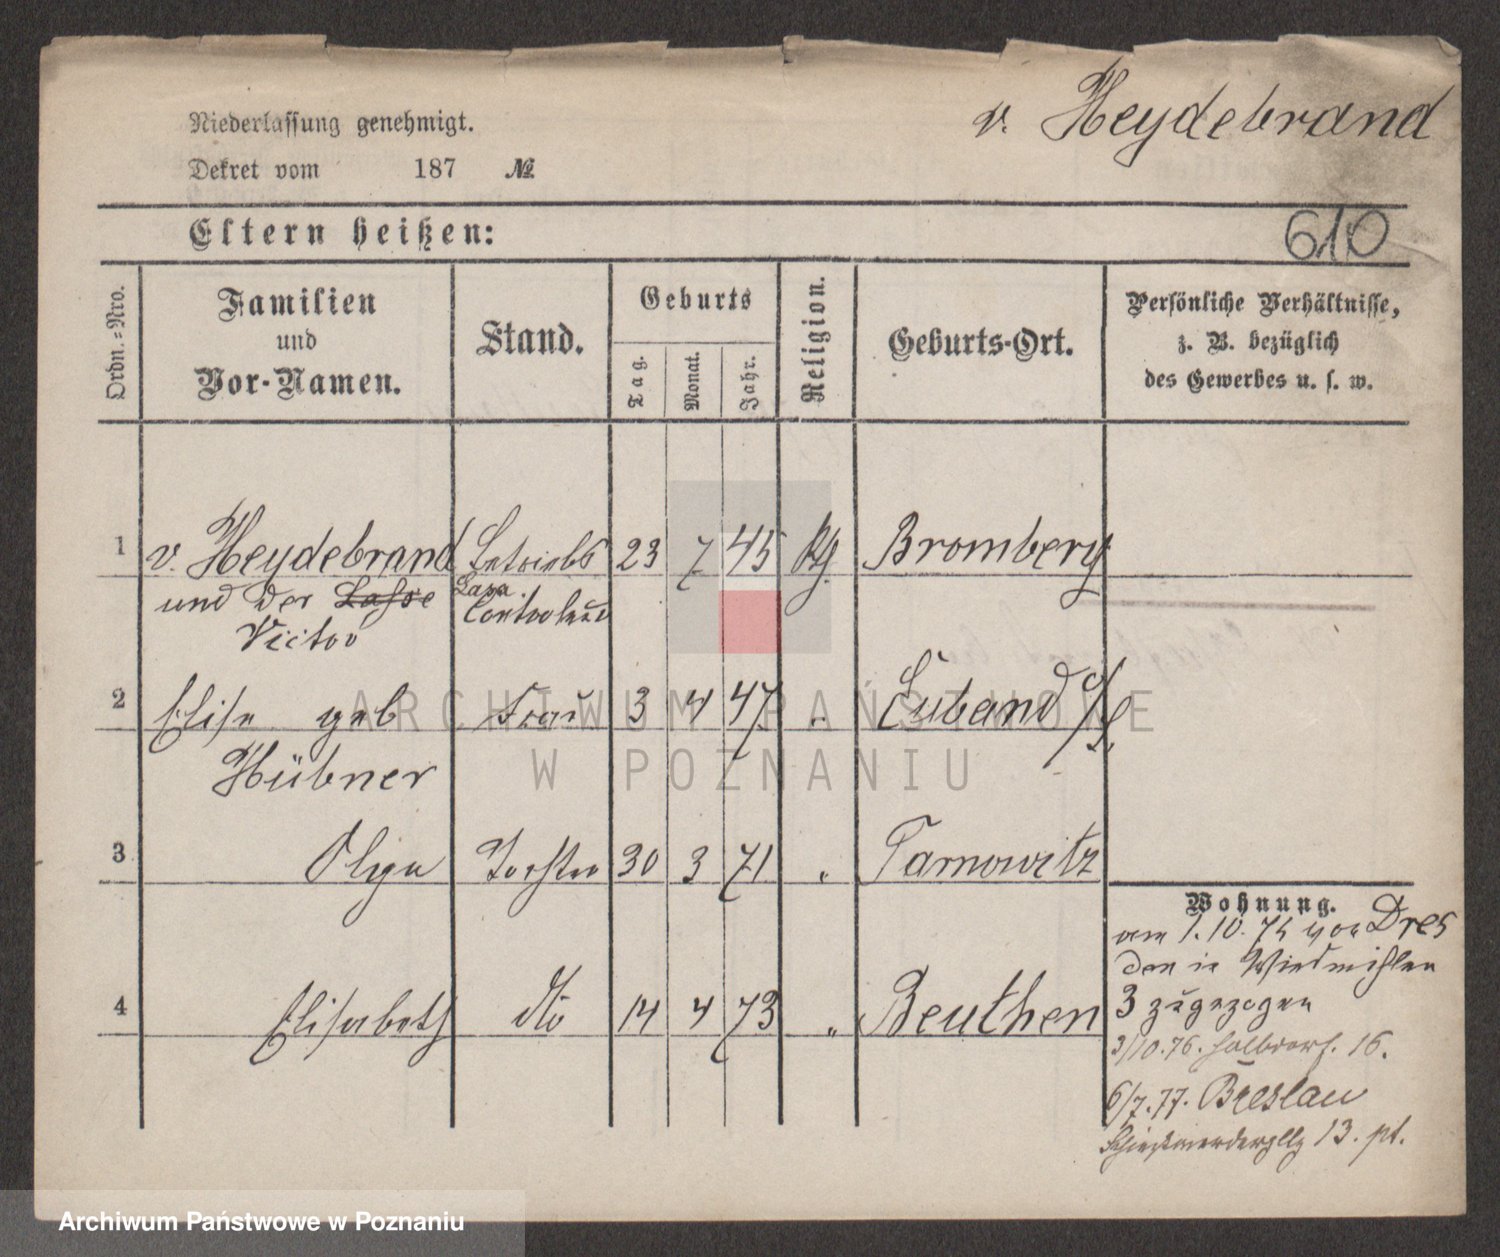 v. Heydebrand
Niederlassung genehmigt.
Dekret vom 187 №
Eltern heißen:
610
Ordn.=Nro.
Familien
und
Vor-Namen.
Stand.
Geburts
Tag.
Monat.
Jahr.
Religion.
Geburts-Ort.
Persönliche Verhältnisse,
z. B. bezüglich
des Gewerbes u. s. w.
1 v. Heydebrand Betriebs 23 7 45 Bromberg
und der Lasse
Victor Controleur
2 Elise geb Frau 3 4 47 " Luband
Hübner
3 Olga Tochter 30 3 71 " Tarnowitz
4 Elisabeth dto 14 4 73 " Beuthen
Wohnung.
am 1.10. von Dres
den in
3 zugezogen
3/10.76. Halbdorfs. 16.
6/7.77. Breslau
13. pt.
ARCHIWUM PAŃSTWOWE
W POZNANIU
Archiwum Państwowe w Poznaniu